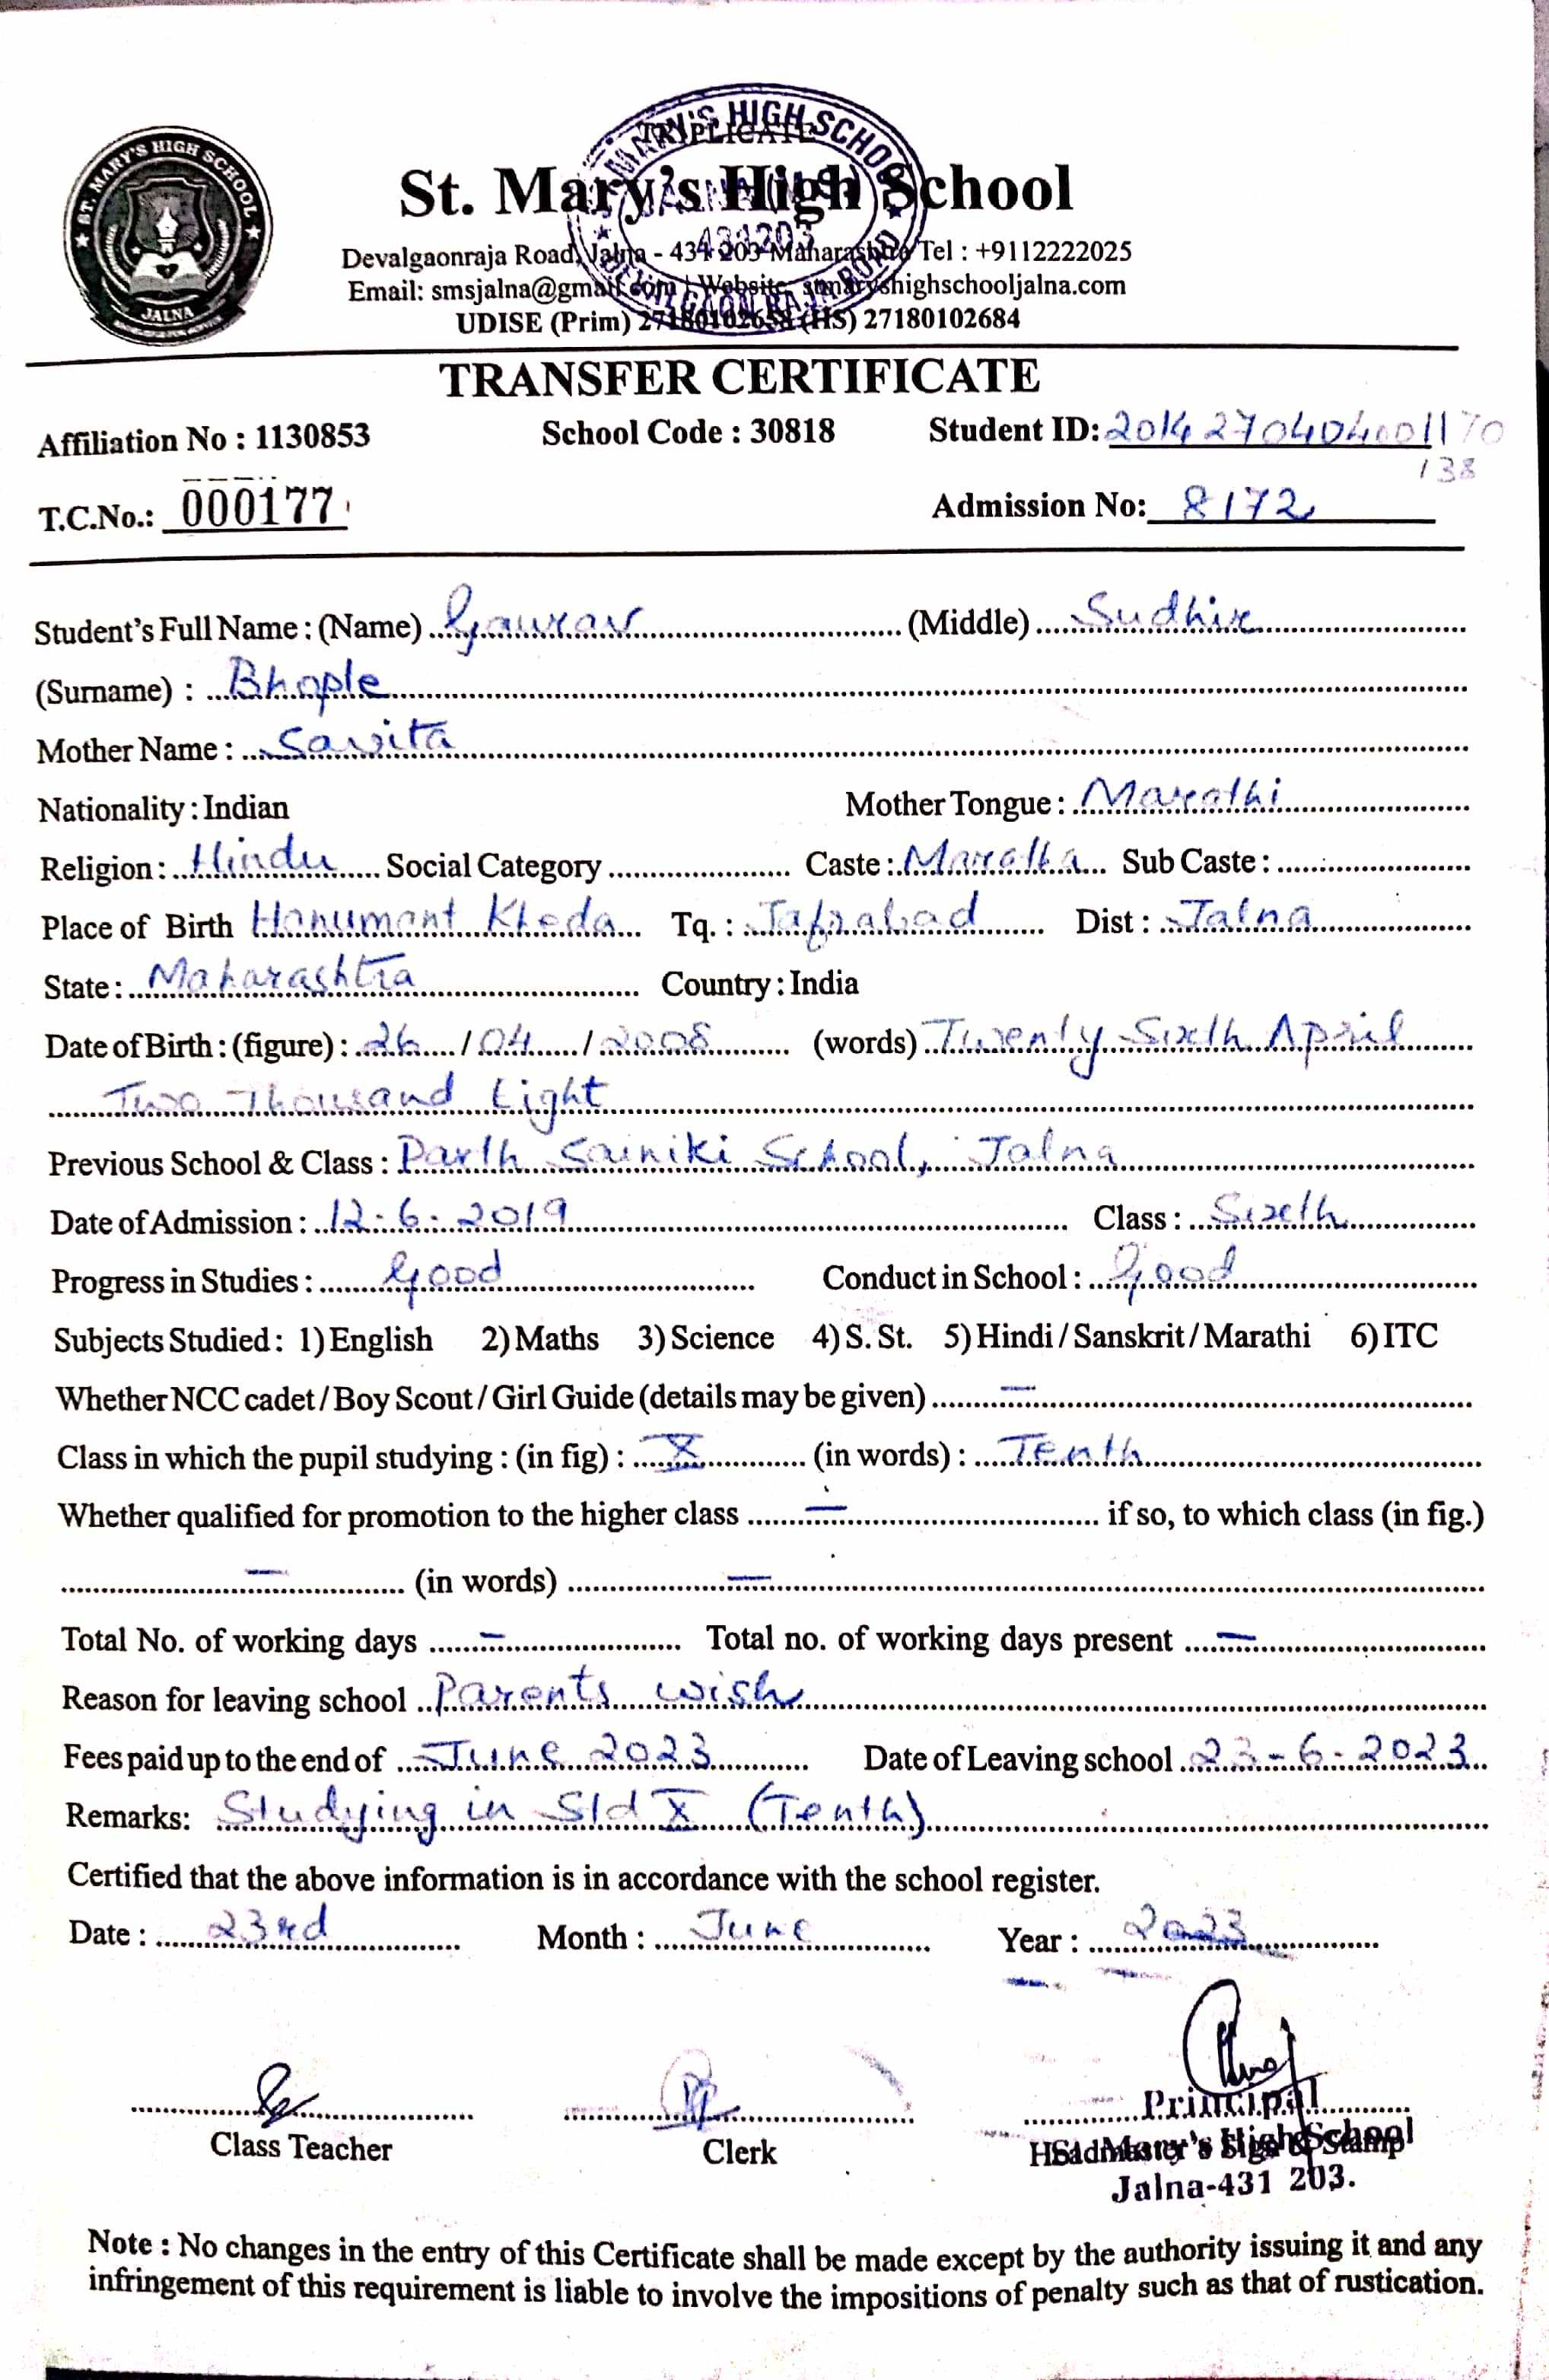 TRIPLICATE
ST. MARY'S HIGH SCHOOL
JALNA
MARY'S HIGH SCHOOL
431203
DEVALGAON RAJA ROAD
St. Mary's High School
Devalgaonraja Road, Jalna - 431 203 Maharashtra Tel : +9112222025
Email: smsjalna@gmail.com | Website: stmaryshighschooljalna.com
UDISE (Prim) 27180102658 (HS) 27180102684
TRANSFER CERTIFICATE
Affiliation No : 1130853 School Code : 30818 Student ID: 2014270404001170
138
T.C.No.: 000177 Admission No: 8172
Student's Full Name : (Name) Gaurav (Middle) Sudhir
(Surname) : Bhople
Mother Name : Savita
Nationality : Indian Mother Tongue : Marathi
Religion : Hindu Social Category Caste : Maratha Sub Caste :
Place of Birth Hanumant Kheda Tq. : Jafrabad Dist : Jalna
State : Maharashtra Country : India
Date of Birth : (figure) : 26 / 04 / 2008 (words) Twenty Sixth April
Two Thousand Eight
Previous School & Class : Parth Sainiki School, Jalna
Date of Admission : 12-6-2019 Class : Sixth
Progress in Studies : Good Conduct in School : Good
Subjects Studied : 1) English 2) Maths 3) Science 4) S. St. 5) Hindi / Sanskrit / Marathi 6) ITC
Whether NCC cadet / Boy Scout / Girl Guide (details may be given) —
Class in which the pupil studying : (in fig) : X (in words) : Tenth
Whether qualified for promotion to the higher class — if so, to which class (in fig.)
— (in words) —
Total No. of working days — Total no. of working days present —
Reason for leaving school Parents wish
Fees paid up to the end of June 2023 Date of Leaving school 23-6-2023
Remarks: Studying in Std X (Tenth)
Certified that the above information is in accordance with the school register.
Date : 23rd Month : June Year : 2023
Principal
Class Teacher Clerk Headmaster's Sign & Stamp
St. Mary's High School
Jalna-431 203.
Note : No changes in the entry of this Certificate shall be made except by the authority issuing it and any
infringement of this requirement is liable to involve the impositions of penalty such as that of rustication.